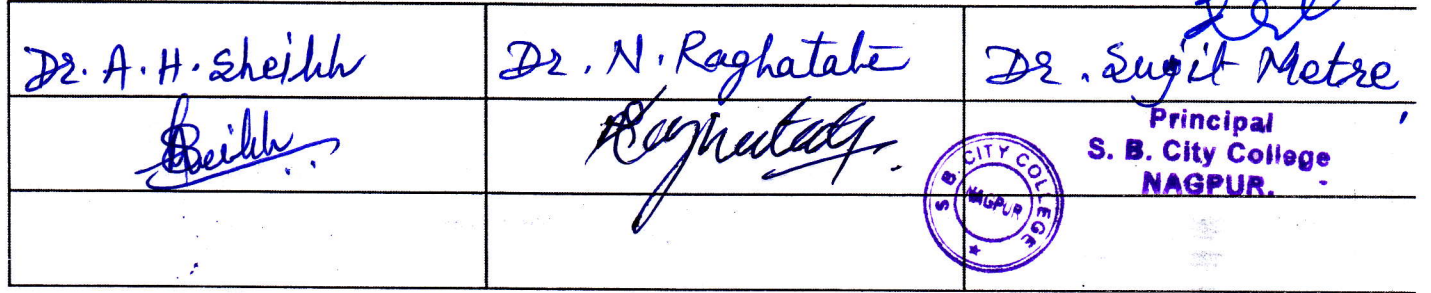 Dr. A. H. Sheikh
Dr. N. Raghatate
Dr. Sujit Metre
Sheikh
Raghatate
Principal
S. B. City College
NAGPUR.
S. B. CITY COLLEGE
NAGPUR